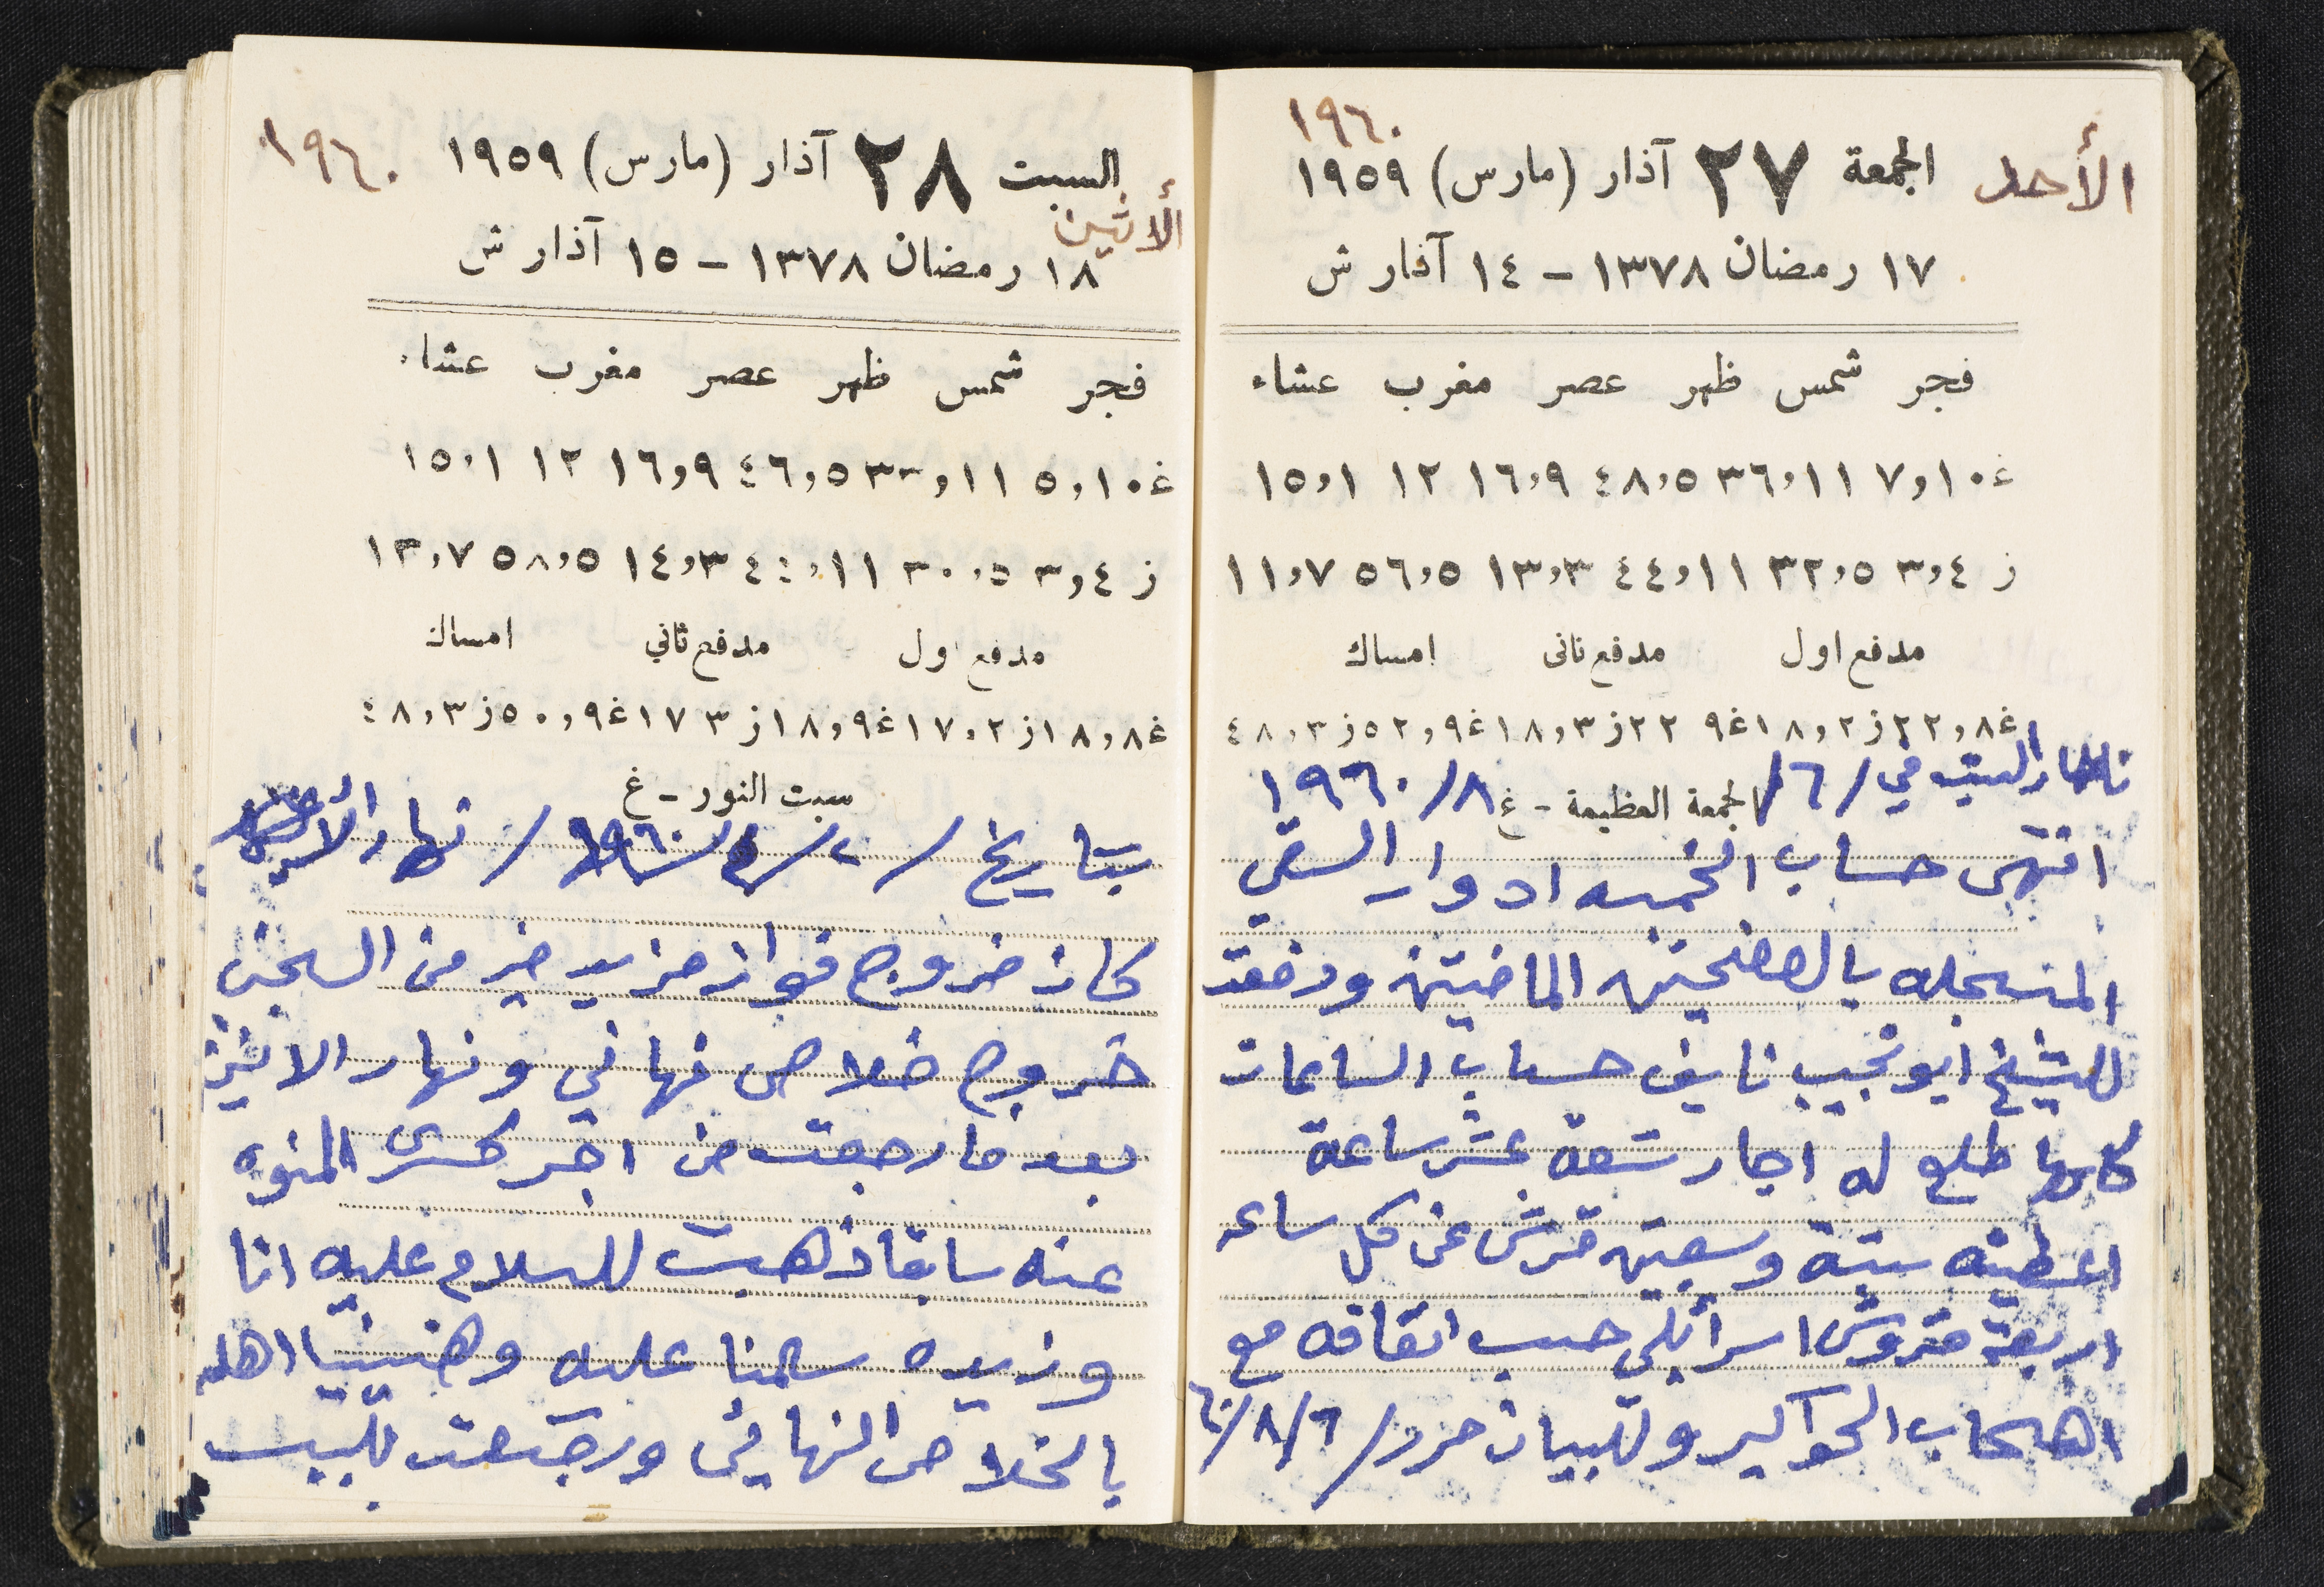 ١٩٦٠
الأحد الجمعة ٢٧ آذار (مارس) ١٩٥٩
١٧ رمضان ١٣٧٨ - ١٤ آذار ش
فجر شمس ظهر عصر مغرب عشاء
غ ٧,١٠ ٣٦,١١ ٤٨,٥ ١٦,٩ ١٢ ١٥,١
ز ٣,٤ ٣٢,٥ ٤٤,١١ ١٣,٣ ٥٦,٥ ١١,٧
مدفع اول مدفع ثاني امساك
غ ٢٢,٨ ز ١٨,٢ غ ٩ ٢٢ ز ١٨,٣ غ ٥٢,٩ ز ٤٨,٣
نهار السبت في /٦/ ٨/ ١٩٦٠
الجمعة العظيمة - غ
انتهى حساب الخمسه ادوار السقي
المنسجله بالصفحتين الماضيتين ودفعت
للشيخ ابو نجيب نايف حساب الساعات
كامها طلع له اجار تسعة عشر ساعة
اعطيته ستة وسبعين قرش عن كل ساعه
اربعة قروش اسرائيلي حسب اتفاقه مع
اصحاب الحواكير وللبيان حرر /٦/٨/٦٠
السبت ٢٨ آذار (مارس) ١٩٥٩ ١٩٦٠
الاثنين
١٨ رمضان ١٣٧٨ - ١٥ آذار ش
فجر شمس ظهر عصر مغرب عشاء
غ ٥,١٠ ٣٣,١١ ٤٦,٥ ١٦,٩ ١٢ ١٥,١
ز ٣,٤ ٣٠,٥ ٤٤,١١ ١٤,٣ ٥٨,٥ ١٣,٧
مدفع اول مدفع ثاني امساك
غ ١٨,٨ ز ١٧,٢ غ ١٨,٩ ز ٣ ١٧ غ ٥٠,٩ ز ٤٨,٣
سبت النور - غ
بتاريخ / ١٩٦٠ / نهار
كان خروج فواز مزيد خير من السجن
خروج خلاص نهائي ونهار الاثنين
بعد ما رجعت من اجر كسرى المنوه
عنه سابقا ذهبت للسلام عليه انا
وزيده سلمنا عليه وهنينا اهله
بالخلاص النهائي ورجعت للبيت